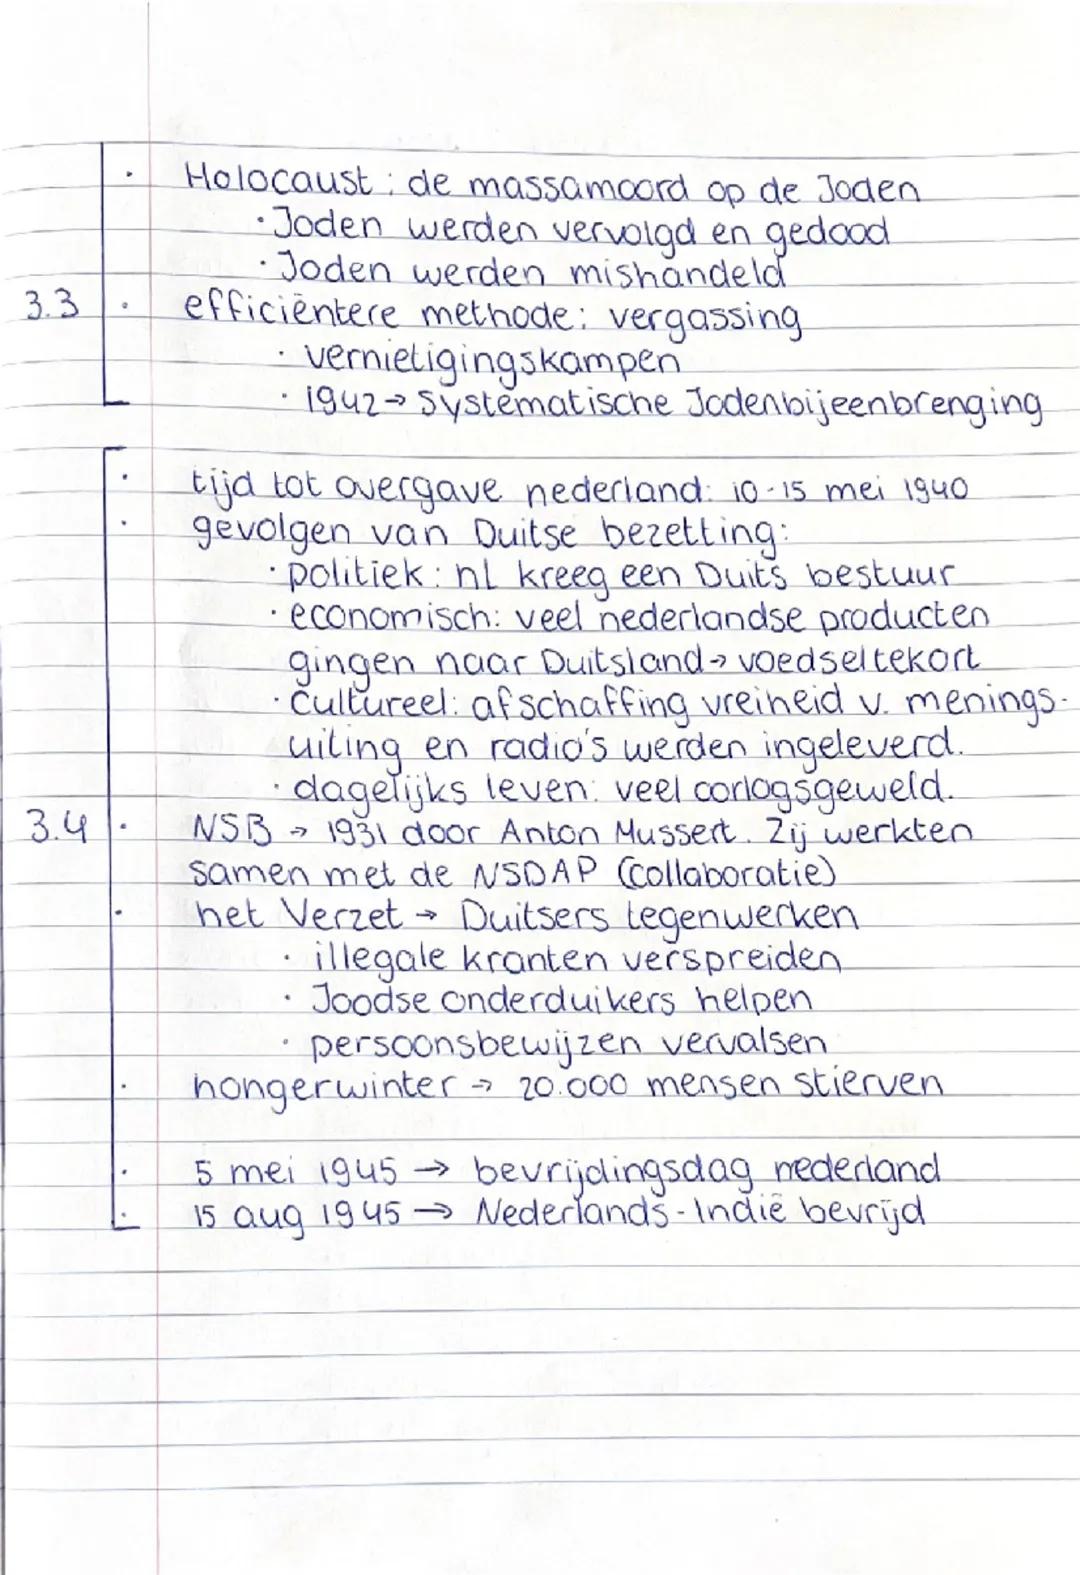 · Holocaust : de massamoord op de Joden
· Joden werden vervolgd en gedood
· Joden werden mishandeld
3.3 · efficiëntere methode: vergassing
· vernietigingskampen
· 1942 → Systematische Jodenbijeenbrenging
· tijd tot overgave nederland: 10-15 mei 1940
· gevolgen van Duitse bezetting:
· politiek : nl kreeg een Duits bestuur
· economisch: veel nederlandse producten
gingen naar Duitsland → voedseltekort
· Cultureel: afschaffing vreiheid v. menings-
uiting en radio's werden ingeleverd.
· dagelijks leven: veel oorlogsgeweld.
3.4 · NSB → 1931 door Anton Mussert. Zij werkten
samen met de NSDAP (collaboratie)
· het Verzet → Duitsers tegenwerken
· illegale kranten verspreiden
· Joodse onderduikers helpen
· persoonsbewijzen vervalsen
· hongerwinter → 20.000 mensen stierven
· 5 mei 1945 → bevrijdingsdag nederland
· 15 aug 1945 → Nederlands-Indië bevrijd